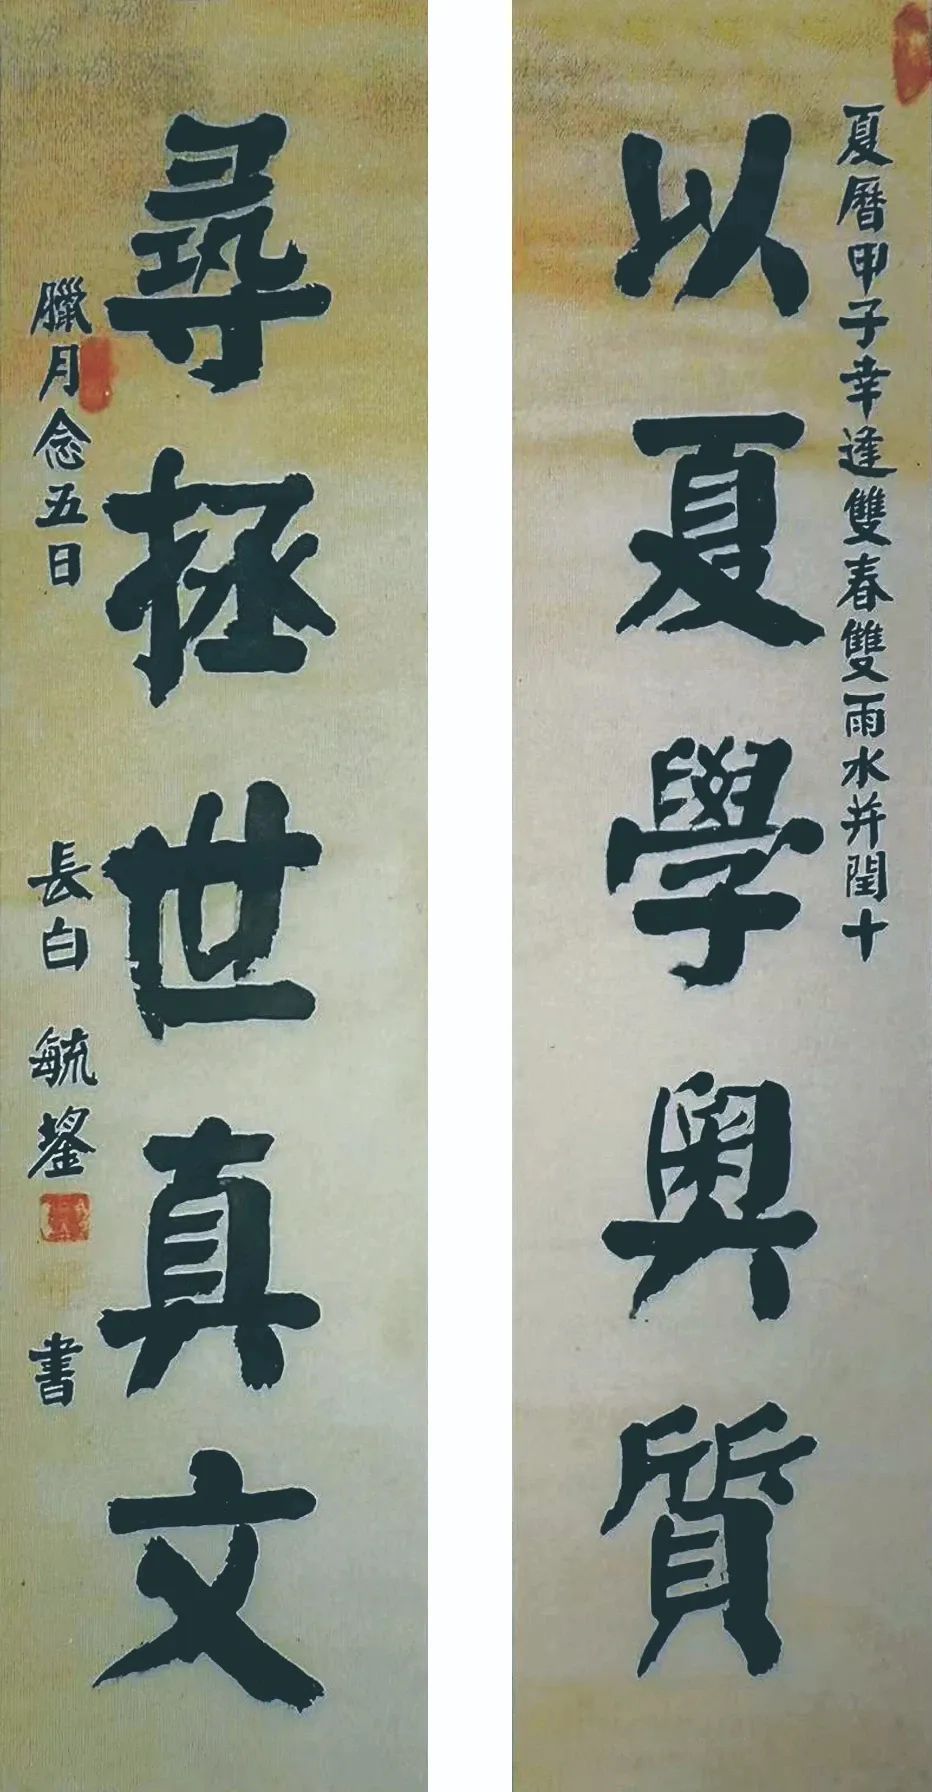 夏曆甲子幸逢雙春雙雨水并閏十
以夏學奧質
尋拯世真文
臘月念五日 長白 毓鋆 書